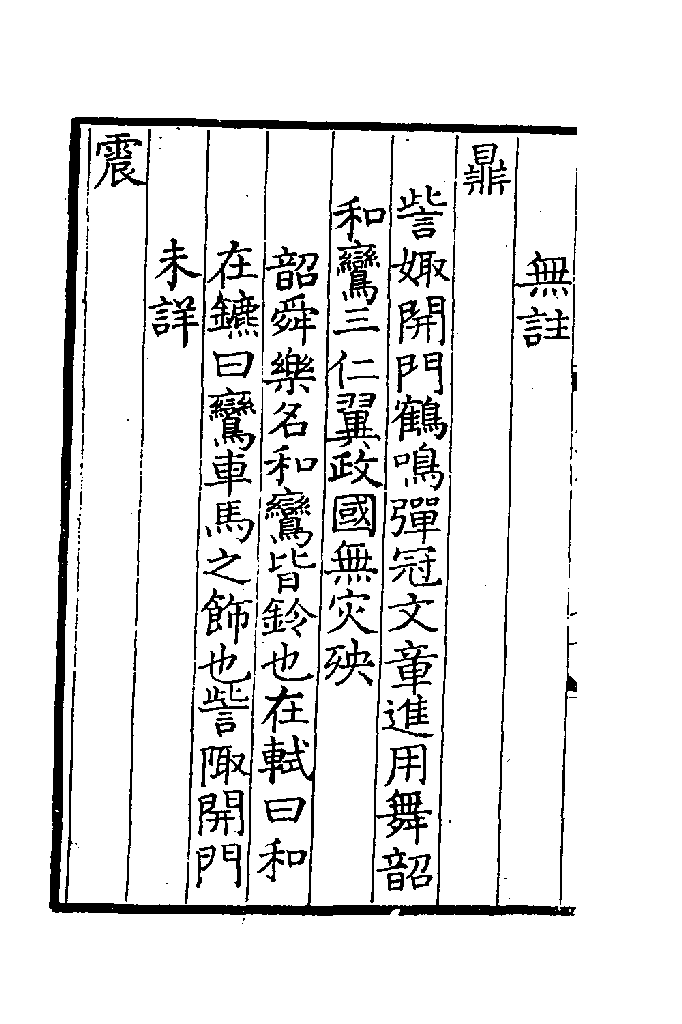 無註
鼎
訾娵開門鶴鳴彈冠文章進用舞韶
和鸞三仁翼政國無灾殃
韶舜樂名和鸞皆鈴也在軾曰和
在鑣曰鸞車馬之飾也訾陬開門
未詳
震